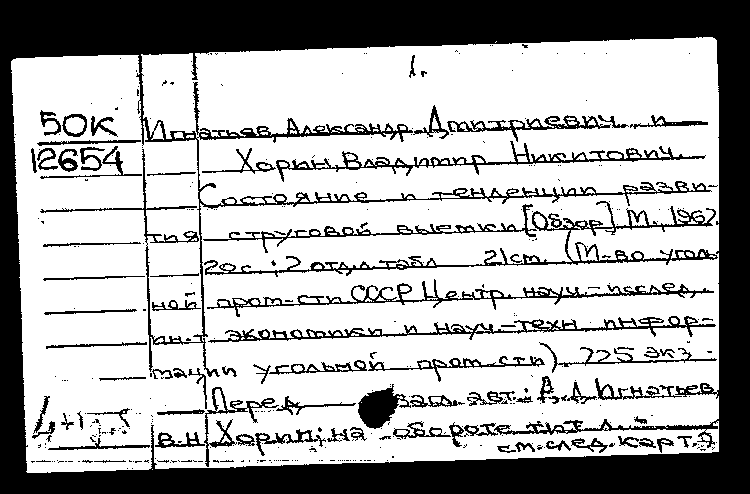 1.
50К Игнатьев, Александр Дмитриевич и
12654 Хорин, Владимир Никитович.
Состояние и тенденции разви-
тия струговой выемки [Обзор] М., 1967.
20с.; 2 отд.л.табл 21см. (М-во уголь-
ной пром-сти СССР Центр. науч.-исслед.
ин-т экономики и науч.-техн инфор-
мации угольной пром сти). 725 экз.
Перед загл. авт.: А.Д. Игнатьев,
В.Н Хорин; на обороте тит л.
см.след.карт.